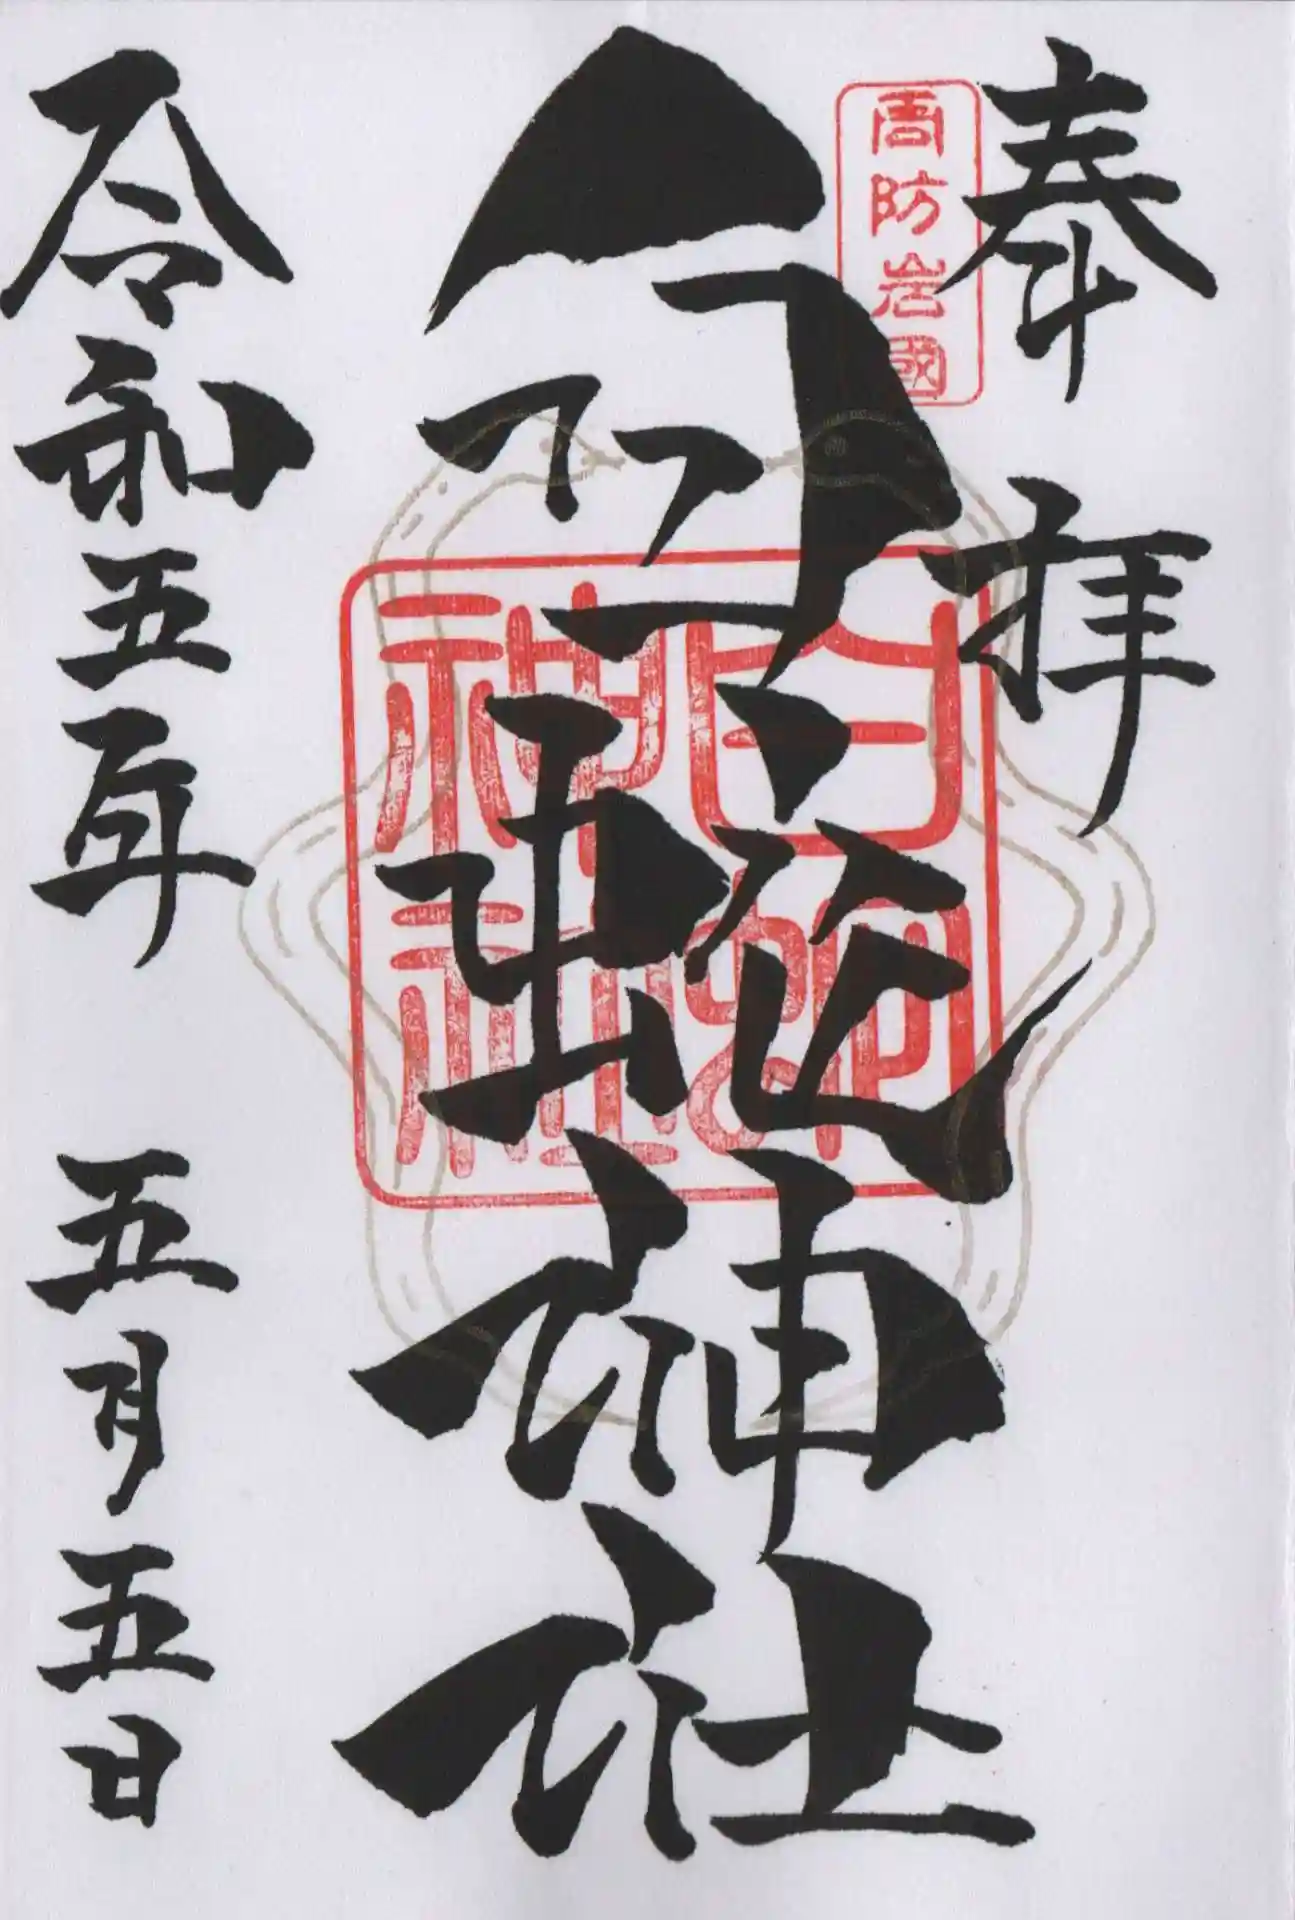 奉拝
周防岩國
白蛇神社
白蛇神社
令和五年 五月五日